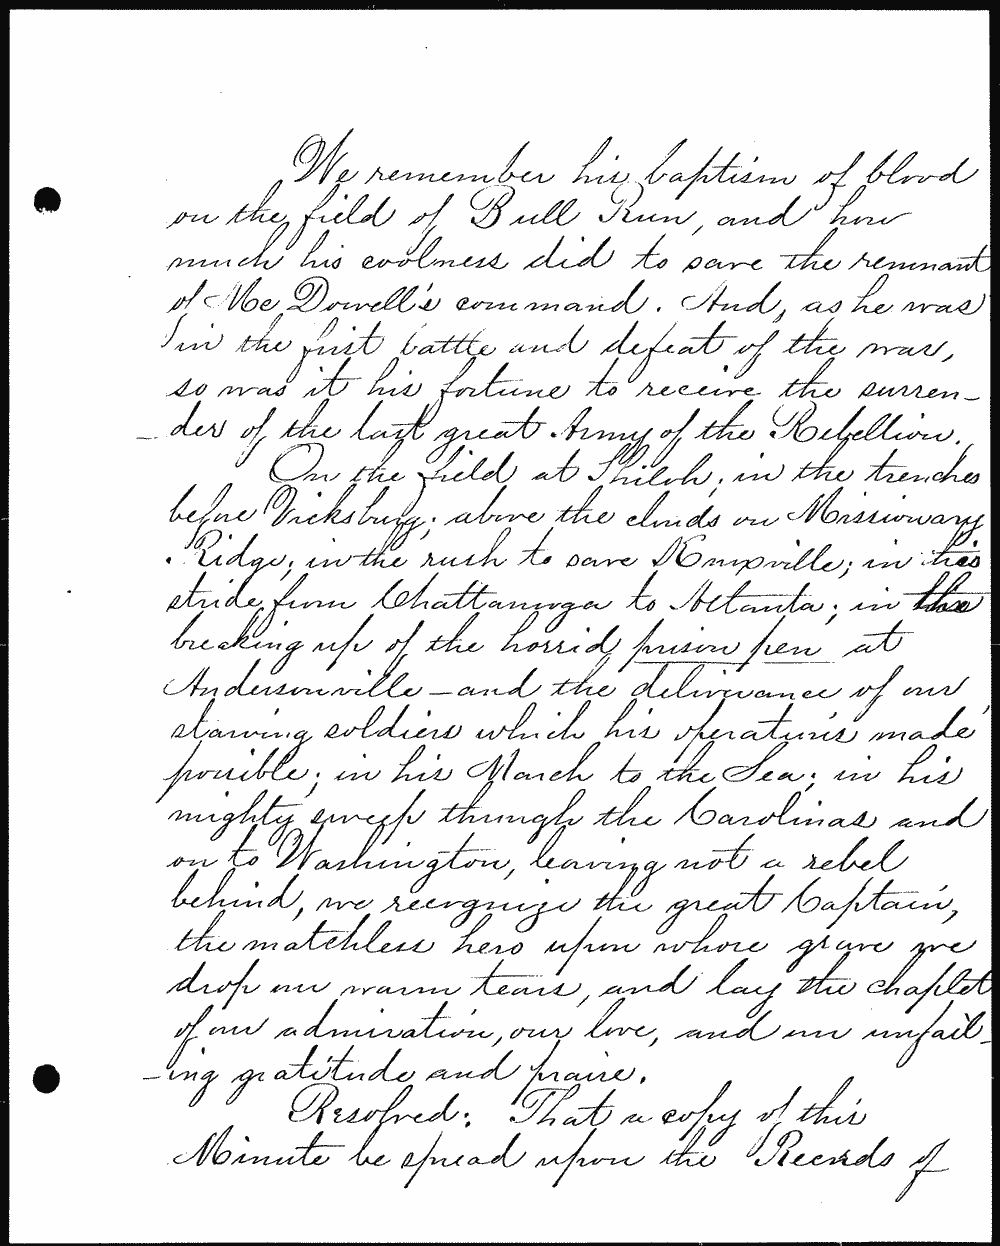 We remember his baptism of blood
on the field of Bull Run, and how
much his coolness did to save the remnant
of McDowell's command. And, as he was
in the first battle and defeat of the war,
so was it his fortune to receive the surren-
-der of the last great Army of the Rebellion.
On the field at Shiloh; in the trenches
before Vicksburg; above the clouds on Missionary
Ridge; in the rush to save Knoxville; in his
stride from Chattanooga to Atlanta; in the
breaking up of the horrid prison pen at
Andersonville – and the deliverance of our
starving soldiers which his operations made
possible; in his March to the Sea; in his
mighty sweep through the Carolinas and
on to Washington, leaving not a rebel
behind, we recognize the great Captain,
the matchless hero upon whose grave we
drop our warm tears, and lay the chaplet
of our admiration, our love, and our unfail-
-ing gratitude and praise.
Resolved: That a copy of this
Minute be spread upon the Records of